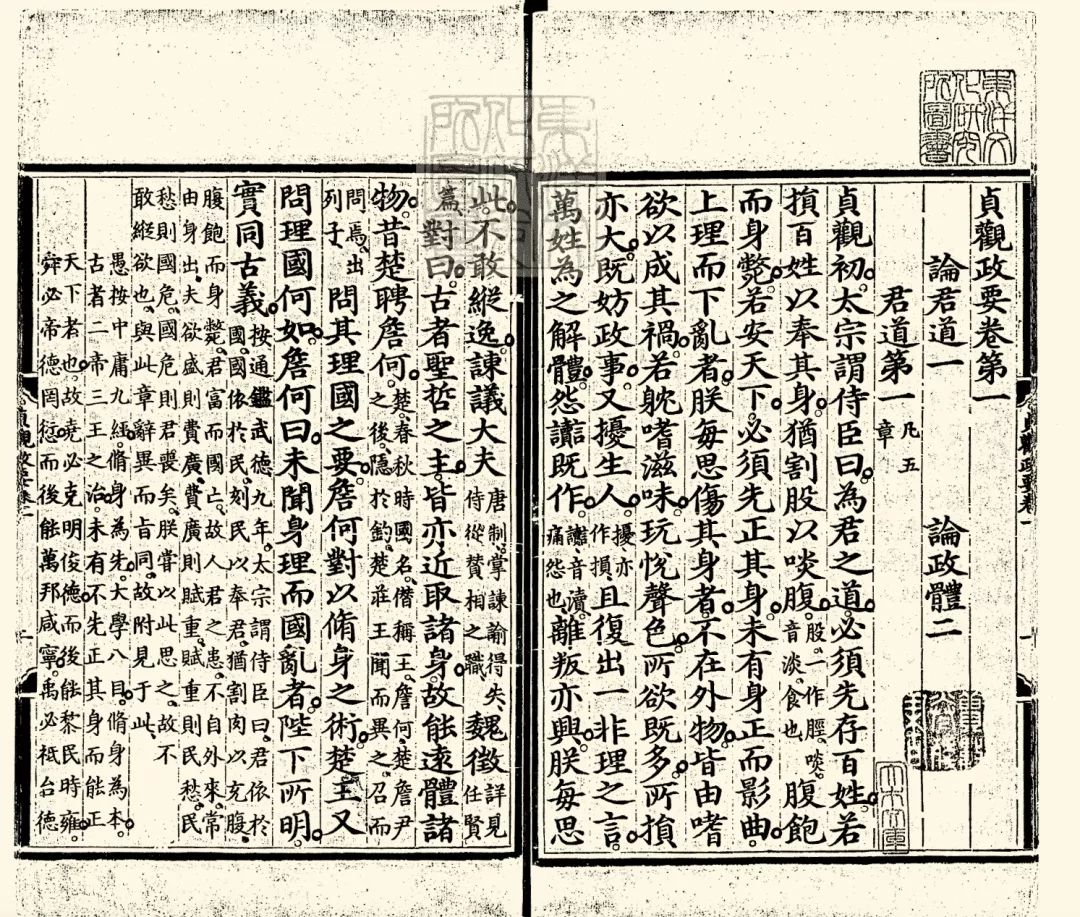 貞觀政要卷第一
論君道一 論政體二
君道第一 凡五章
貞觀初。太宗謂侍臣曰。為君之道。必須先存百姓。若
損百姓以奉其身。猶割股以啖腹。股。一作脛。啖。音淡。食也。腹飽
而身斃。若安天下。必須先正其身。未有身正而影曲。
上理而下亂者。朕每思傷其身者。不在外物。皆由嗜
欲以成其禍。若躭嗜滋味。玩悅聲色。所欲既多。所損
亦大。既妨政事。又擾生人。擾。亦作損。且復出一非理之言。
萬姓為之解體。怨讟既作。讟。音瀆。痛怨也。離叛亦興。朕每思
此。不敢縱逸。諫議大夫唐制。掌諫諭得失。侍從贊相之職。魏徵詳見任賢
篇。對曰。古者聖哲之主。皆亦近取諸身。故能遠體諸
物。昔楚聘詹何。楚。春秋時國名。僭稱王。詹何。楚詹尹之後。隱於釣。楚莊王聞而異之。召而
問焉。出列子。問其理國之要。詹何對以脩身之術。楚王又
問理國何如。詹何曰。未聞身理而國亂者。陛下所明。
實同古義。按通鑑武德九年。太宗謂侍臣曰。君依於
國。國依於民。刻民以奉君。猶割肉以充腹。
腹飽而身斃。君富而國亡。故人君之患。不自外來。常
由身出。夫欲盛則費廣。費廣則賦重。賦重則民愁。民
愁則國危。國危則君喪矣。朕嘗以此思之。故不
敢縱欲也。與此章辭異而旨同。故附見于此。
愚按中庸九經。脩身為先。大學八目。脩身為本。
古者二帝三王之治。未有不先正其身而能正
天下者也。故堯必克明俊德。而後能黎民時雍。
舜必帝德罔愆。而後能萬邦咸寧。禹必祗台德
東洋文化研究所圖書
大木文庫